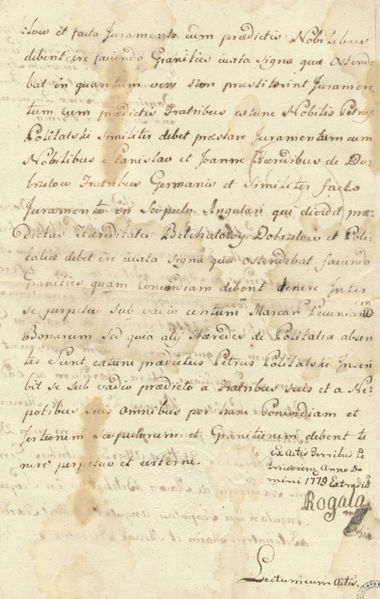 hoc et facto Juramento cum prædictis Nobilibus
debent ire faciendo Granities iuxta Signa qua ostende
bat in quantum vero non præstiterint Juramen
tum cum prædictis Fratribus extunc Nobilis Petrus
Politalski Similiter debet præstare Juramentum cum
Nobilibus Stanislao et Joanne Hæredibus de Do
brzelow Fratribus Germanis et Similiter facto
Juramento in Scopulo Angulari qui dividit præ
dictas Hæreditates Belchatow Dobrzelow et Poli
talice debet ire iuxta Signa qua ostendebat faciendo
Granities quam Concordiam debent tenere Inter
se perpetuo Sub vadio centum Marcar Pecuniar
Bonarum Sed quia alij Hæredes de Politalia absen
tes Sunt extunc prædictus Petrus Politalski Inscri
bit se sub vadio prædicto a Fratribus suis et a Ne
potibus Suis omnibus per hanc Concordiam et
Scopulorum et Granitierum debent te
nere perpetuo et æterne.
Ex Actis Terribus Pe
tricovien Anno Do
mini 1779 Extradit
Rogala
mpria
Lectum cum Actis.